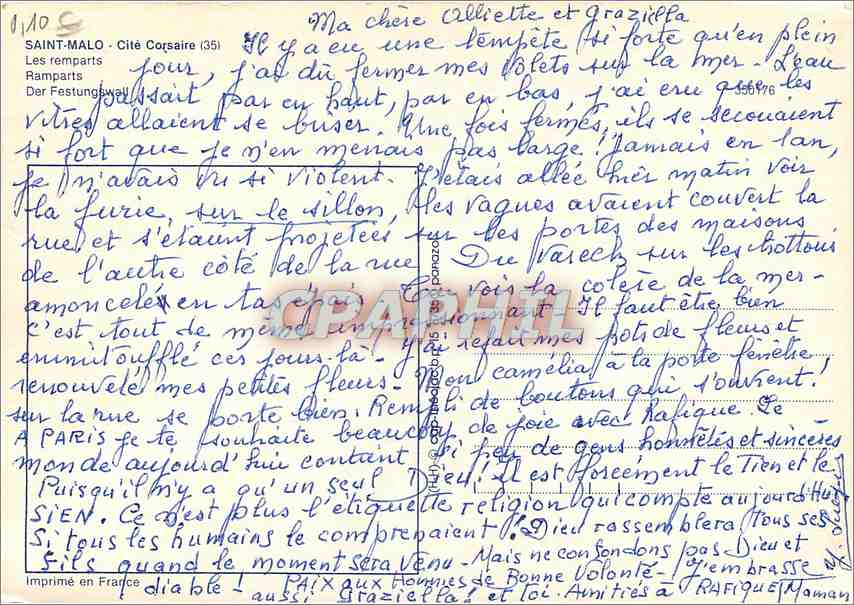 1,10 €
SAINT-MALO - Cité Corsaire (35)
Les remparts
Ramparts
Der Festungswall
350176
Ma chère Alliette et Graziella
Il y a eu une tempête si forte qu'en plein
jour, j'ai dû fermer mes volets sur la mer - L'eau
passait par en haut, par en bas, j'ai cru que les
vitres allaient se briser. Une fois fermés, ils se secouaient
si fort que je n'en menais pas large! Jamais en 1 an,
je n'avais vu si violent - J'étais allée hier matin voir
la furie, sur le sillon, les vagues avaient couvert la
rue et s'étaient projetées sur les portes des maisons
de l'autre côté de la rue. Du varech sur les trottoirs
amoncelé en tas épais. Tu vois la colère de la mer -
C'est tout de même impressionnant - Il faut être bien
emmitoufflé ces jours-là - J'ai refait mes pots de fleurs et
renouvelé mes petites fleurs - Mon camélia à la porte fenêtre
sur la rue se porte bien. Rempli de boutons qui s'ouvrent!
A PARIS je te souhaite beaucoup de joie avec Rafique. Le
monde aujourd'hui contant si peu de gens honnêtes et sincères
Puisqu'il n'y a qu'un seul Dieu! Il est forcément le Tien et le
SIEN. Ce n'est plus l'étiquette religion qui compte aujourd'hui
Si tous les humains le comprenaient! Dieu rassemblera tous ses
fils quand le moment sera venu - Mais ne confondons pas Dieu et
diable! PAIX aux Hommes de Bonne Volonté - J'embrasse
aussi Graziella! et toi. Amitiés à RAFIQUE Maman
Imprimé en France
CPAPHIL